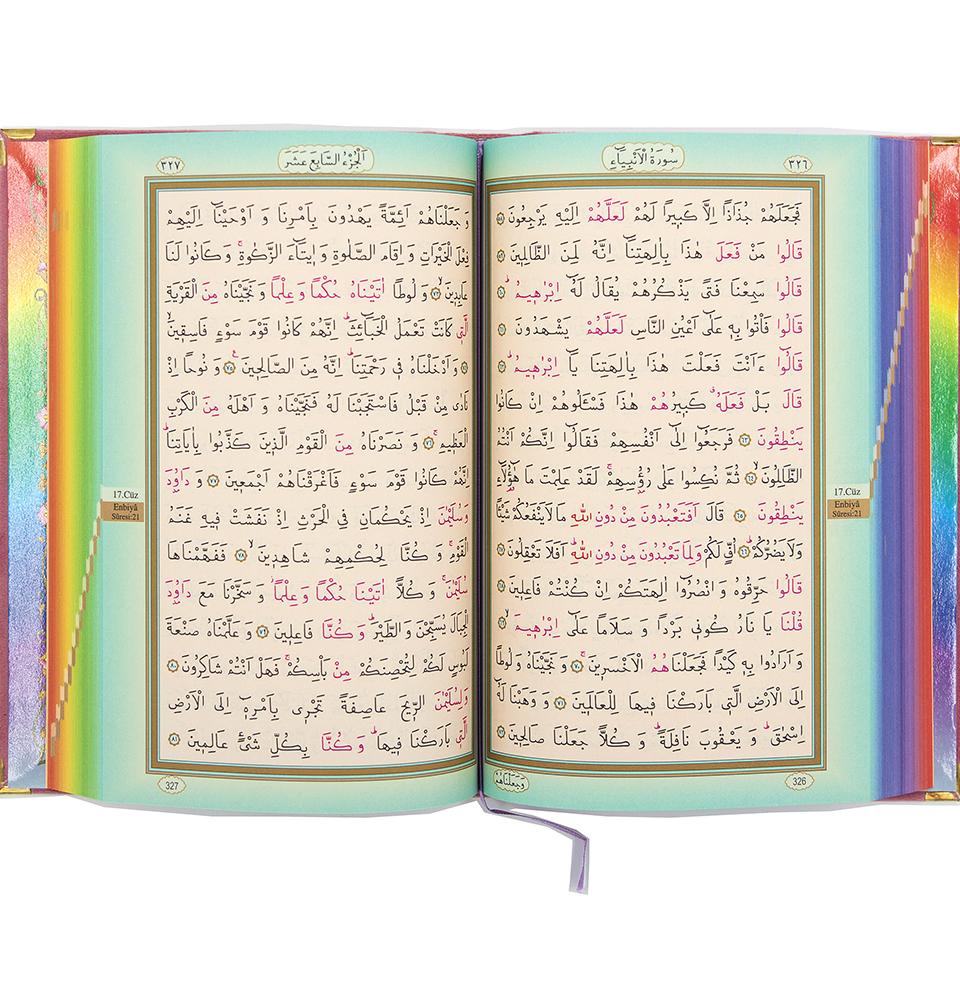 ٣٢٦
سُورَةُ الْاَنْبِيَٓاءِ
فَجَعَلَهُمْ جُذَاذًا اِلَّا كَبٖيرًا لَهُمْ لَعَلَّهُمْ اِلَيْهِ يَرْجِعُونَ ٥٨
قَالُوا مَنْ فَعَلَ هٰذَا بِاٰلِهَتِنَٓا اِنَّهُ لَمِنَ الظَّالِمٖينَ ٥٩
قَالُوا سَمِعْنَا فَتًى يَذْكُرُهُمْ يُقَالُ لَهُٓ اِبْرٰهٖيمُ ؕ ٦٠
قَالُوا فَأْتُوا بِهٖ عَلٰٓى اَعْيُنِ النَّاسِ لَعَلَّهُمْ يَشْهَدُونَ ٦١
قَالُٓوا ءَاَنْتَ فَعَلْتَ هٰذَا بِاٰلِهَتِنَا يَٓا اِبْرٰهٖيمُ ؕ ٦٢
قَالَ بَلْ فَعَلَهُ ۗ كَبٖيرُهُمْ هٰذَا فَسْـَٔلُوهُمْ اِنْ كَانُوا
يَنْطِقُونَ ٦٣ فَرَجَعُٓوا اِلٰٓى اَنْفُسِهِمْ فَقَالُٓوا اِنَّكُمْ اَنْتُمُ
الظَّالِمُونَ ۙ ٦٤ ثُمَّ نُكِسُوا عَلٰى رُؤُ۫سِهِمْ ۚ لَقَدْ عَلِمْتَ مَا هٰٓؤُ۬لَٓاءِ
يَنْطِقُونَ ٦٥ قَالَ اَفَتَعْبُدُونَ مِنْ دُونِ اللّٰهِ مَا لَا يَنْفَعُكُمْ شَيْـًٔا
وَلَا يَضُرُّكُمْ ؕ ٦٦ اُفٍّ لَكُمْ وَلِمَا تَعْبُدُونَ مِنْ دُونِ اللّٰهِ ؕ اَفَلَا تَعْقِلُونَ ٦٧
قَالُوا حَرِّقُوهُ وَ انْصُرُٓوا اٰلِهَتَكُمْ اِنْ كُنْتُمْ فَاعِلٖينَ ٦٨
قُلْنَا يَا نَارُ كُونٖى بَرْدًا وَ سَلَامًا عَلٰٓى اِبْرٰهٖيمَ ۙ ٦٩
وَ اَرَادُوا بِهٖ كَيْدًا فَجَعَلْنَاهُمُ الْاَخْسَرٖينَ ۚ ٧٠ وَ نَجَّيْنَاهُ وَ لُوطًا
اِلَى الْاَرْضِ الَّتٖى بَارَكْنَا فٖيهَا لِلْعَالَمٖينَ ٧١ وَ وَهَبْنَا لَهُٓ
اِسْحٰقَ ؕ وَ يَعْقُوبَ نَافِلَةً ؕ وَ كُلًّا جَعَلْنَا صَالِحٖينَ ٧٢
وَجَعَلْنَاهُمْ
326
17.Cüz
Enbiyâ
Sûresi:21
٣٢٧
اَلْجُزْءُ السَّابِعَ عَشَرَ
وَ جَعَلْنَاهُمْ اَئِمَّةً يَهْدُونَ بِاَمْرِنَا وَ اَوْحَيْنَٓا اِلَيْهِمْ
فِعْلَ الْخَيْرَاتِ وَ اِقَامَ الصَّلٰوةِ وَ اٖيتَٓاءَ الزَّكٰوةِ ۚ وَ كَانُوا لَنَا
عَابِدٖينَ ۙ ٧٣ وَ لُوطًا اٰتَيْنَاهُ حُكْمًا وَ عِلْمًا وَ نَجَّيْنَاهُ مِنَ الْقَرْيَةِ
الَّتٖى كَانَتْ تَعْمَلُ الْخَبَٓائِثَ ؕ اِنَّهُمْ كَانُوا قَوْمَ سَوْءٍ فَاسِقٖينَ ۙ
٧٤ وَ اَدْخَلْنَاهُ فٖى رَحْمَتِنَا ؕ اِنَّهُ مِنَ الصَّالِحٖينَ ۟ ٧٥ وَ نُوحًا اِذْ
نَادٰى مِنْ قَبْلُ فَاسْتَجَبْنَا لَهُ فَنَجَّيْنَاهُ وَ اَهْلَهُ مِنَ الْكَرْبِ
الْعَظٖيمِ ۚ ٧٦ وَ نَصَرْنَاهُ مِنَ الْقَوْمِ الَّذٖينَ كَذَّبُوا بِاٰيَاتِنَا ؕ
اِنَّهُمْ كَانُوا قَوْمَ سَوْءٍ فَاَغْرَقْنَاهُمْ اَجْمَعٖينَ ٧٧ وَ دَاوُ۫دَ
وَ سُلَيْمٰنَ اِذْ يَحْكُمَانِ فِى الْحَرْثِ اِذْ نَفَشَتْ فٖيهِ غَنَمُ
الْقَوْمِ ۚ وَ كُنَّا لِحُكْمِهِمْ شَاهِدٖينَ ۙ ٧٨ فَفَهَّمْنَاهَا
سُلَيْمٰنَ ۚ وَ كُلًّا اٰتَيْنَا حُكْمًا وَ عِلْمًا ؗ وَ سَخَّرْنَا مَعَ دَاوُ۫دَ
الْجِبَالَ يُسَبِّحْنَ وَ الطَّيْرَ ؕ وَ كُنَّا فَاعِلٖينَ ٧٩ وَ عَلَّمْنَاهُ صَنْعَةَ
لَبُوسٍ لَكُمْ لِتُحْصِنَكُمْ مِنْ بَأْسِكُمْ ۚ فَهَلْ اَنْتُمْ شَاكِرُونَ ٨٠
وَ لِسُلَيْمٰنَ الرّٖيحَ عَاصِفَةً تَجْرٖى بِاَمْرِهٖٓ اِلَى الْاَرْضِ
الَّتٖى بَارَكْنَا فٖيهَا ؕ وَ كُنَّا بِكُلِّ شَىْءٍ عَالِمٖينَ ٨١
327
17.Cüz
Enbiyâ
Sûresi:21